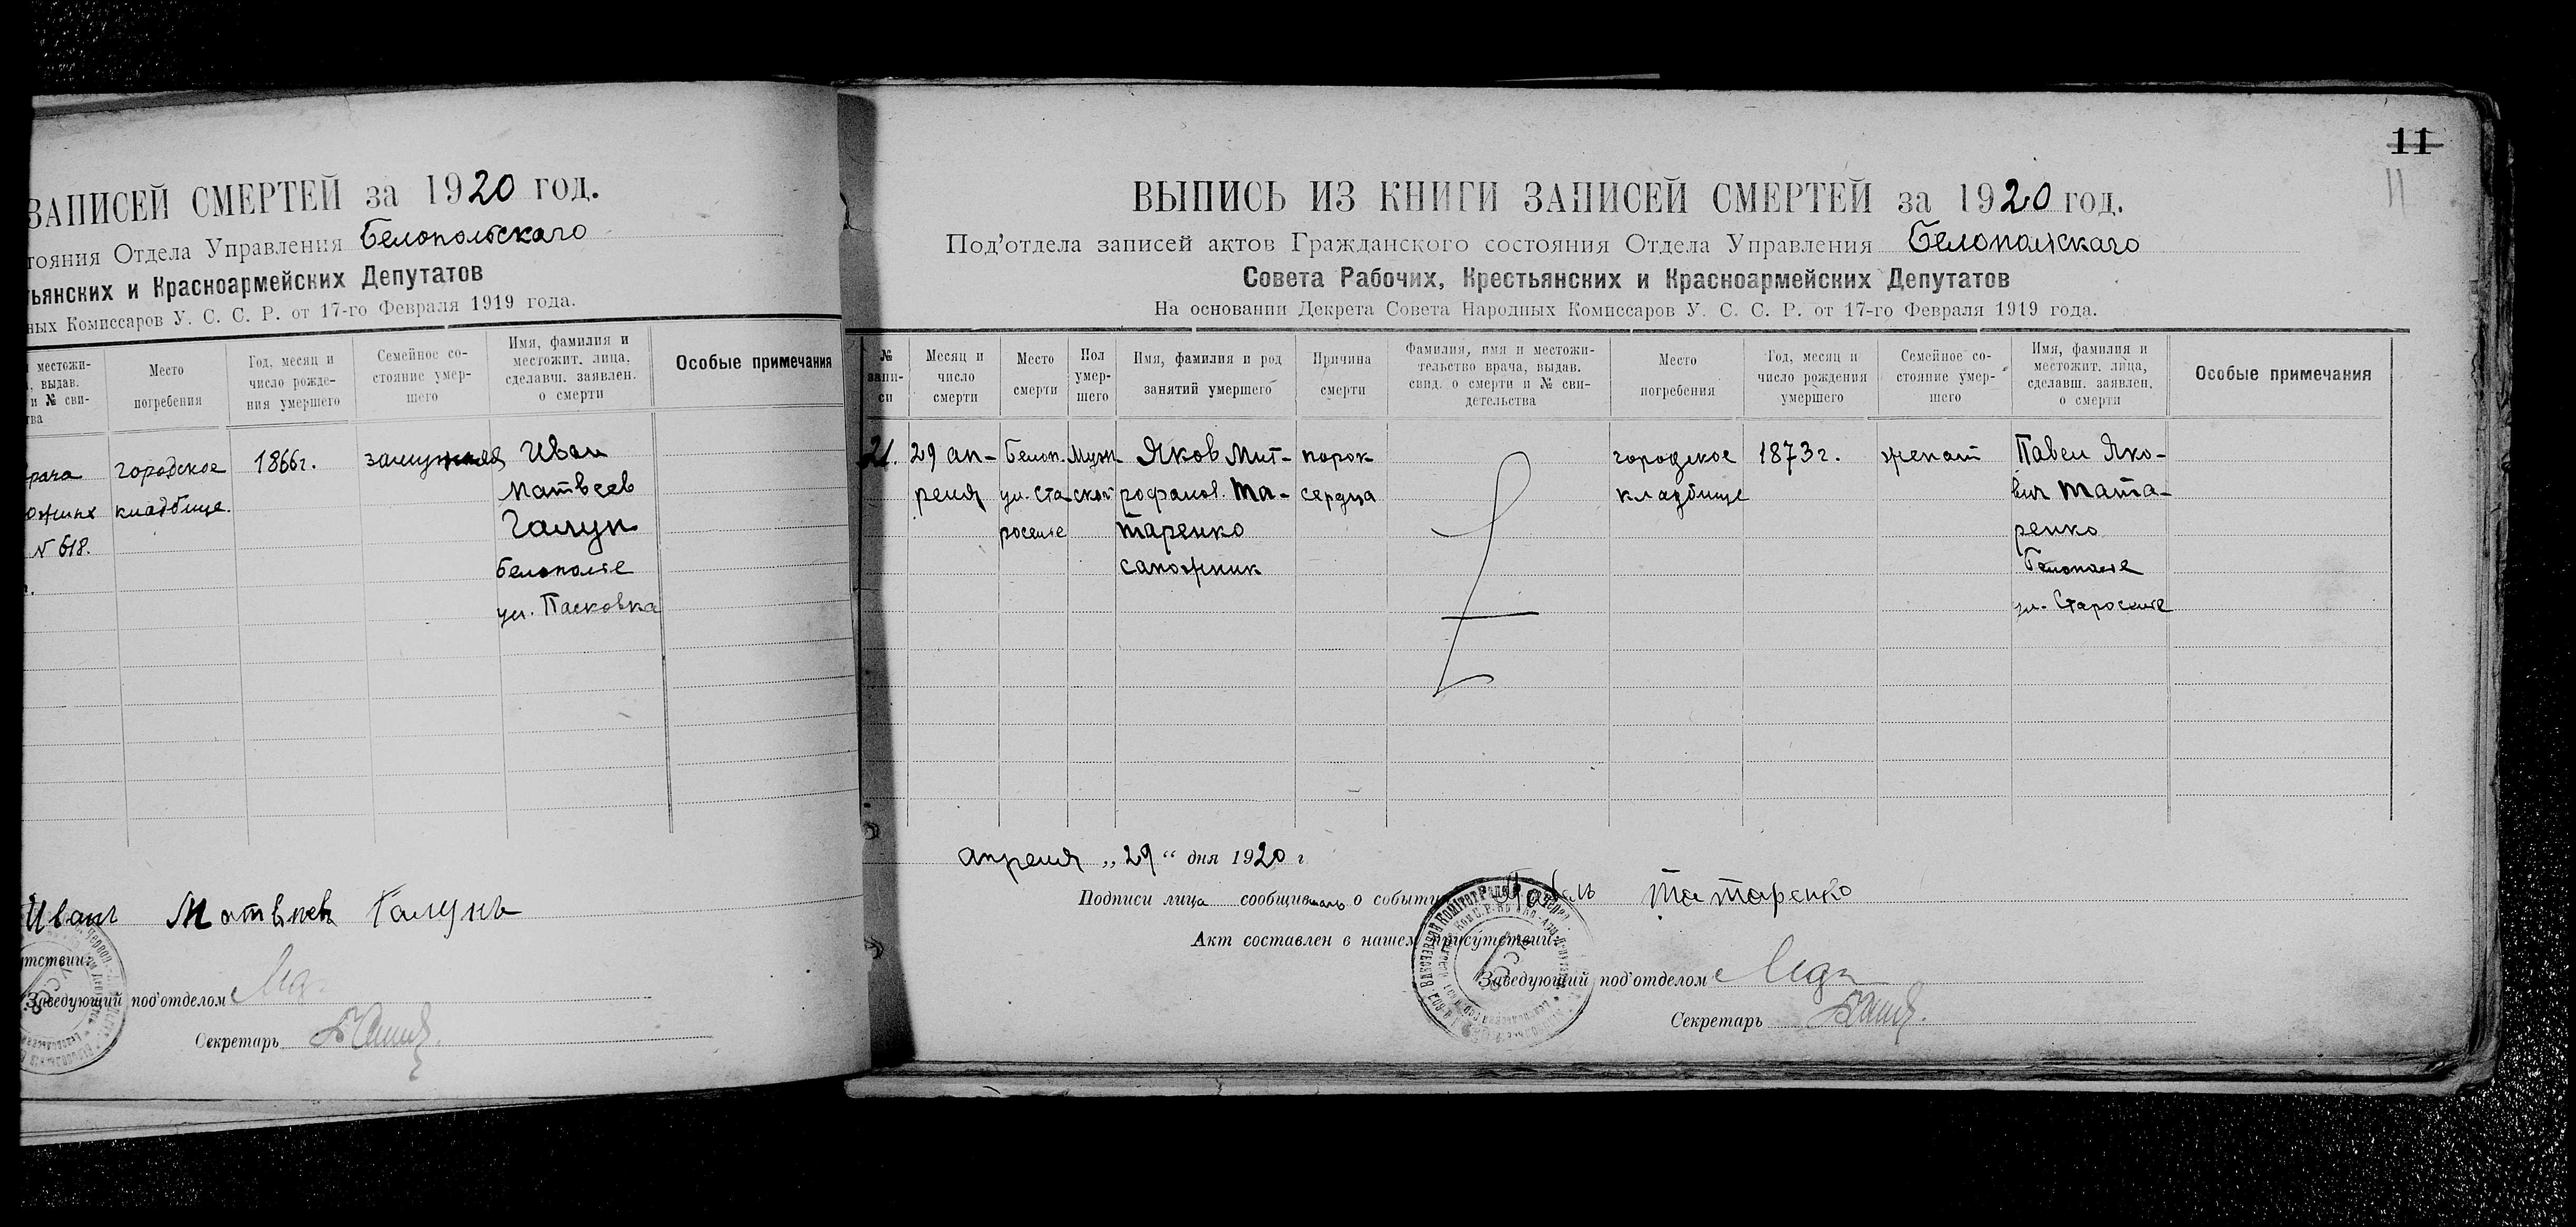 ЗАПИСЕЙ СМЕРТЕЙ за 1920 год.
тояния Отдела Управления Белопольскаго
ьянских и Красноармейских Депутатов
ных Комиссаров У. С. С. Р. от 17-го Февраля 1919 года.
местожи-
, выдав.
и № сви-
тва
Место
погребения
Год, месяц и
число рожде-
ния умершего
Семейное со-
стояние умер-
шего
Имя, фамилия и
местожит. лица,
сделавш. заявлен.
о смерти
Особые примечания
врача
N 618.
городское
кладбище.
1866г.
замужняя
Иван
Матвеев
Галун
Белополье
ул. Пасковка
Иванъ Матвѣевъ Галунъ
утствии:
Заведующий под'отделом
Секретарь
11
11
ВЫПИСЬ ИЗ КНИГИ ЗАПИСЕЙ СМЕРТЕЙ за 1920 год.
Под'отдела записей актов Гражданского состояния Отдела Управления Белопольскаго
Совета Рабочих, Крестьянских и Красноармейских Депутатов
На основании Декрета Совета Народных Комиссаров У. С. С. Р. от 17-го Февраля 1919 года.
№
запи-
си
Месяц и
число
смерти
Место
смерти
Пол
умер-
шего
Имя, фамилия и род
занятий умершего
Причина
смерти
Фамилия, имя и местожи-
тельство врача, выдав.
свид. о смерти и № сви-
детельства
Место
погребения
Год, месяц и
число рождения
умершего
Семейное со-
стояние умер-
шего
Имя, фамилия и
местожит. лица,
сделавш. заявлен.
о смерти
Особые примечания
21.
29 ап-
реля
Белоп.
ул. Ста-
роселье
Муж-
ской
Яков Мит-
рофанов. Та-
таренко
сапожник
порок
сердца
городское
кладбище
1873г.
женат
Павел Яко-
вич Тата-
ренко
Белополье
ул. Староселье
апреля „29“ дня 1920 г
Подписи лица сообщив о событи Павель Татаренко
Акт составлен в нашем присутствии:
Заведующий под'отделом
Секретарь